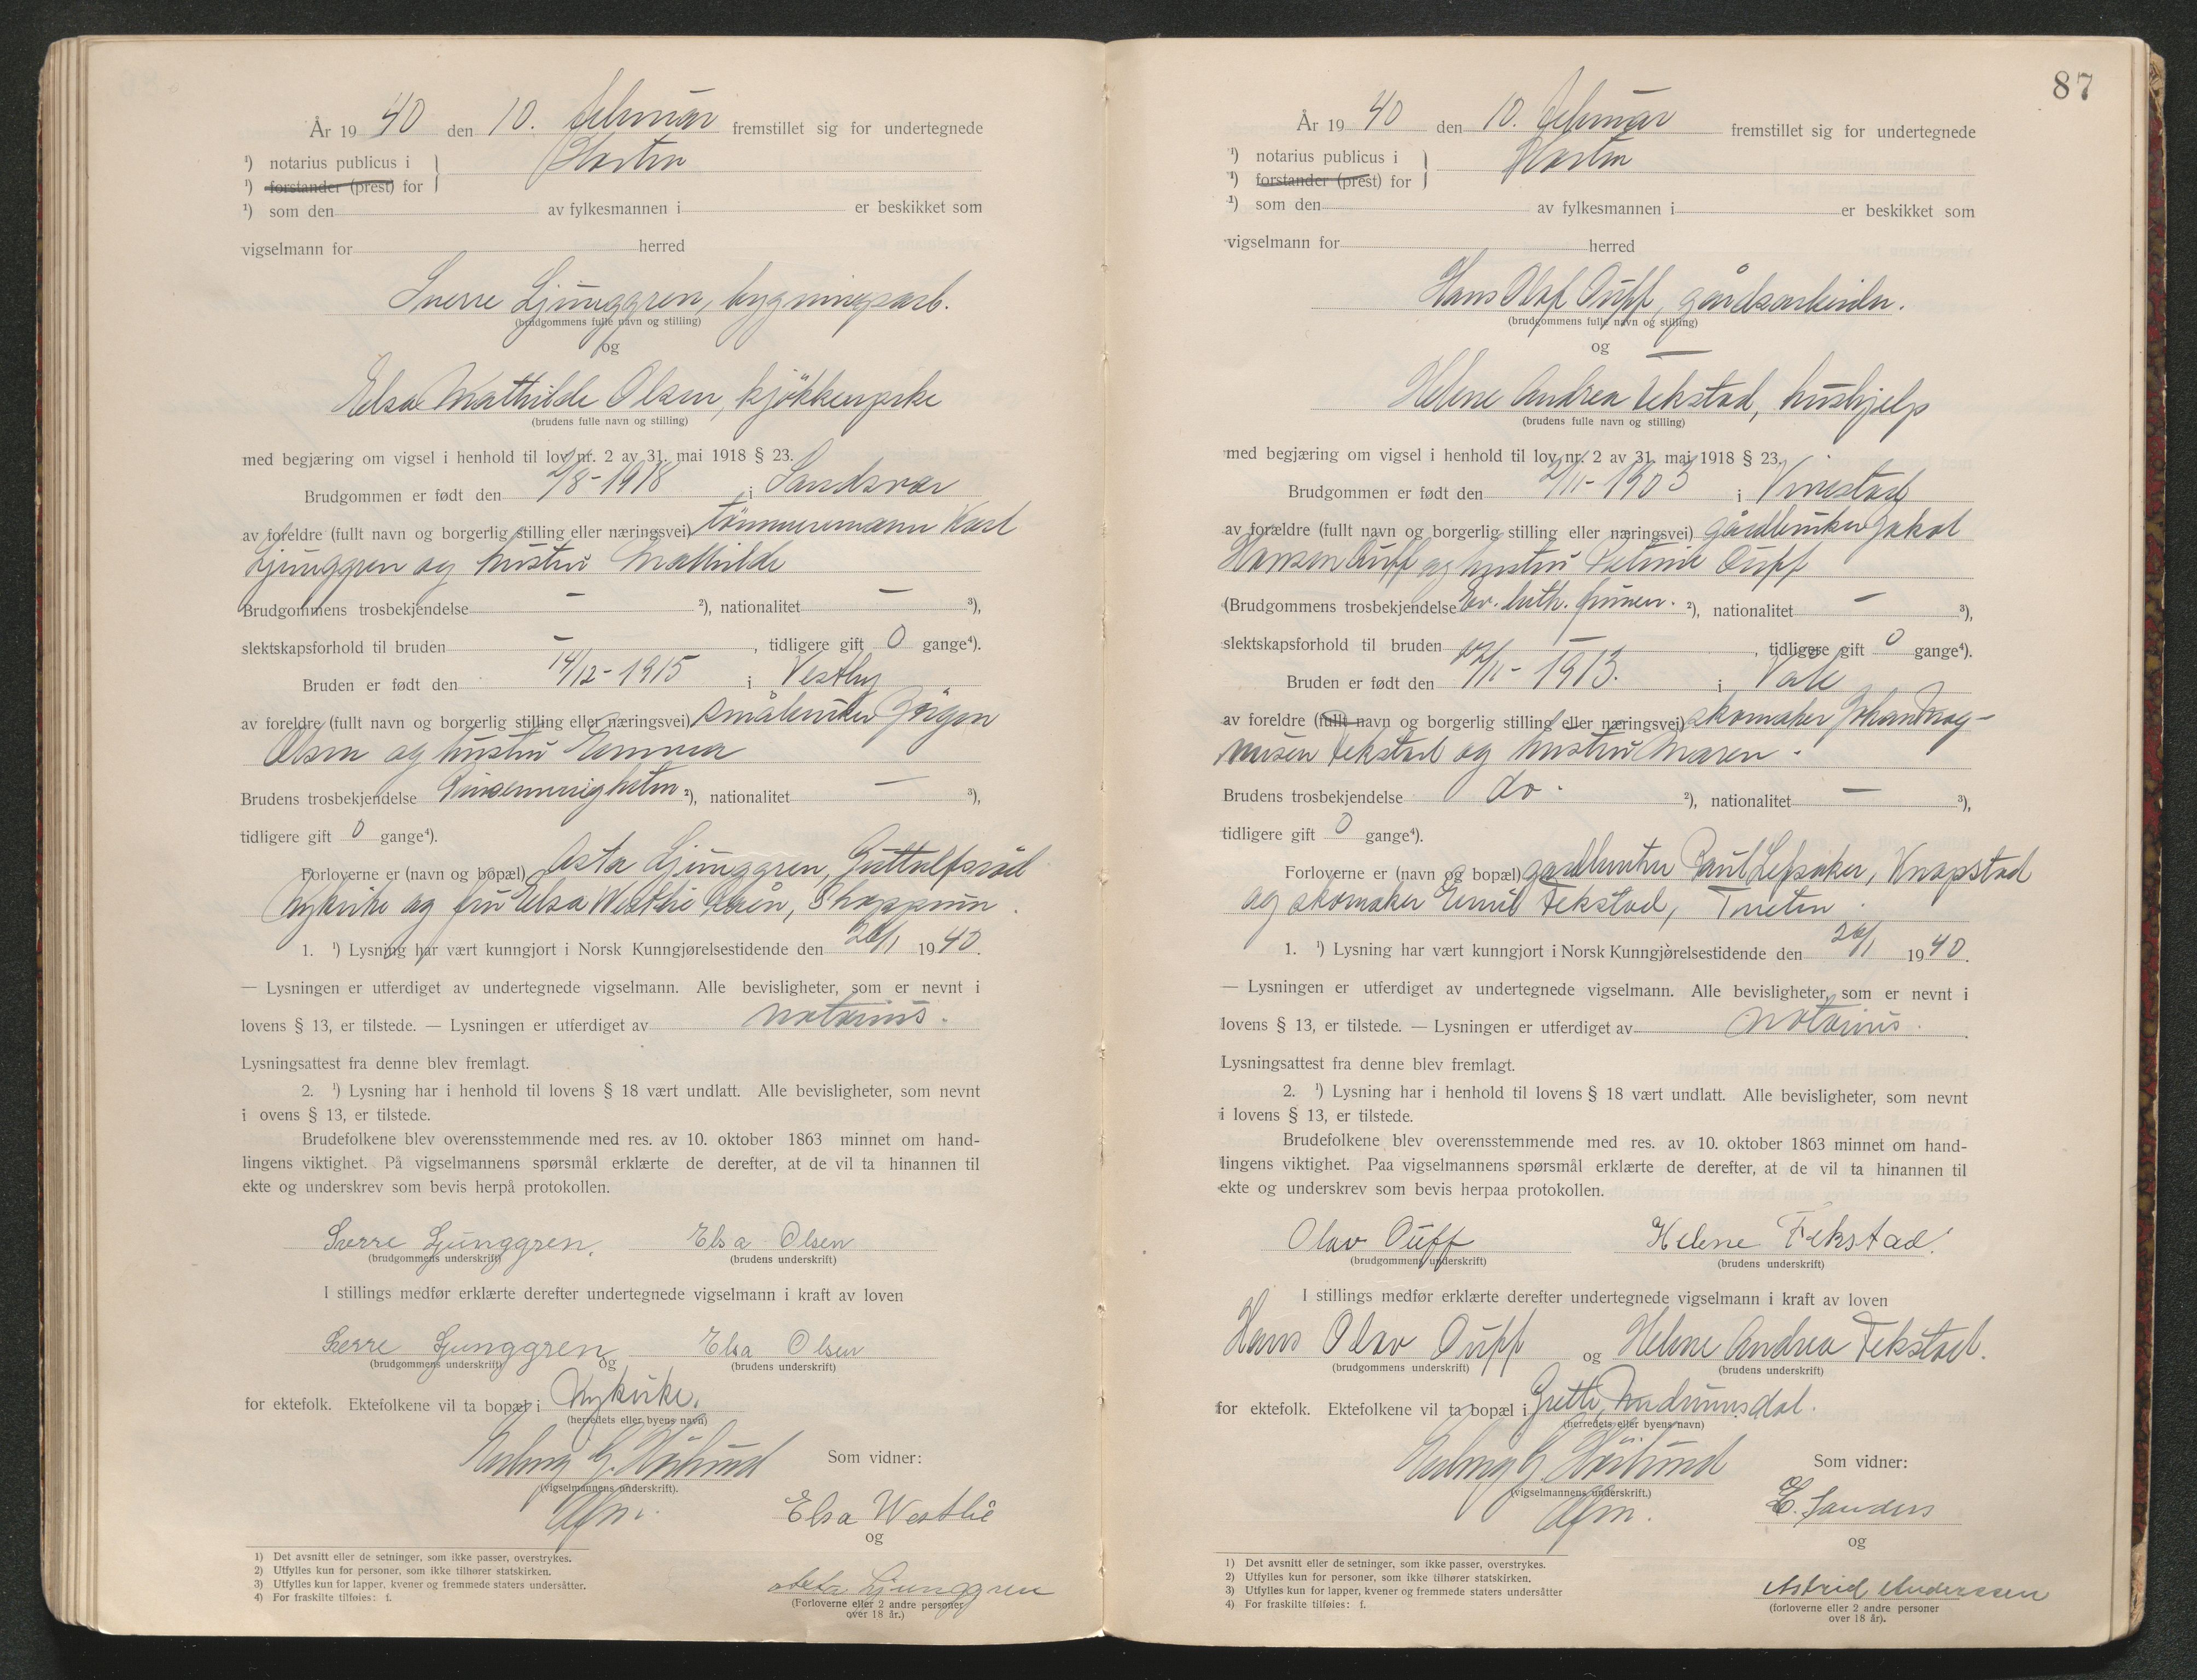 År 19 40 den 10. februar fremstillet sig for undertegnede
¹) notarius publicus i
Horten
¹) forstander (prest) for
¹) som den av fylkesmannen i er beskikket som
vigselmann for herred
Sverre Ljunggren, bygningsarb.
(brudgommens fulle navn og stilling)
og
Elsa Mathilde Olsen, kjökkenpike
(brudens fulle navn og stilling)
med begjæring om vigsel i henhold til lov nr. 2 av 31. mai 1918 § 23.
Brudgommen er født den /8-1918 i Sandsvær
av foreldre (fullt navn og borgerlig stilling eller næringsvei) tömmermann Karl
Ljunggren og hustru Mathilde
Brudgommens trosbekjendelse — ²), nationalitet — ³),
slektskapsforhold til bruden —, tidligere gift 0 gange⁴).
Bruden er født den 14/12-1915 i Vestby
av foreldre (fullt navn og borgerlig stilling eller næringsvei) småbruker Jörgen
Olsen og hustru Emma
Brudens trosbekjendelse Pinsemenigheten ²), nationalitet — ³),
tidligere gift 0 gange⁴).
Forloverne er (navn og bopæl) Asta Ljunggren,
Nykirke og fru Elsa Westlie Skoppum.
1. ¹) Lysning har vært kunngjort i Norsk Kunngjørelsestidende den 26/1 1940.
— Lysningen er utferdiget av undertegnede vigselmann. Alle bevisligheter, som er nevnt i
lovens § 13, er tilstede. — Lysningen er utferdiget av notarius.
Lysningsattest fra denne blev fremlagt.
2. ¹) Lysning har i henhold til lovens § 18 vært undlatt. Alle bevisligheter, som nevnt
i ovens § 13, er tilstede.
Brudefolkene blev overensstemmende med res. av 10. oktober 1863 minnet om hand-
lingens viktighet. På vigselmannens spørsmål erklærte de derefter, at de vil ta hinannen til
ekte og underskrev som bevis herpå protokollen.
Sverre Ljunggren. Elsa Olsen
(brudgommens underskrift) (brudens underskrift)
I stillings medfør erklærte derefter undertegnede vigselmann i kraft av loven
Sverre Ljunggren og Elsa Olsen
(brudgommens underskrift) (brudens underskrift)
for ektefolk. Ektefolkene vil ta bopæl i Nykirke.
(herredets eller byens navn)
Erling G. Som vidner:
(vigselmannens underskrift).
Elsa Westlie
og
Asta Ljunggren
(Forloverne eller 2 andre personer
over 18 år.)
1) Det avsnitt eller de setninger, som ikke passer, overstrykes.
2) Utfylles kun for personer, som ikke tilhører statskirken.
3) Utfylles kun for lapper, kvener og fremmede staters undersåtter.
4) For fraskilte tilføies: f.
87
År 19 40 den 10. februar fremstillet sig for undertegnede
¹) notarius publicus i
Horten
¹) forstander (prest) for
¹) som den av fylkesmannen i er beskikket som
vigselmann for herred
Hans Olaf Ouff, gårdsarbeider.
(brudgommens fulle navn og stilling)
og
Helene Andrea Fekstad, hushjelp
(brudens fulle navn og stilling)
med begjæring om vigsel i henhold til lov nr. 2 av 31. mai 1918 § 23.
Brudgommen er født den 2/11-1903 i
av forældre (fullt navn og borgerlig stilling eller næringsvei) gårdbruker Jakob
Hansen Ouff og hustru Petrine Ouff
(Brudgommens trosbekjendelse Ev. luth. frimen. ²), nationalitet — ³),
slektskapsforhold til bruden —, tidligere gift 0 gange⁴).
Bruden er født den /11-1913. i Våle
av foreldre (fullt navn og borgerlig stilling eller næringsvei) skomaker Johan Mag-
nusen Fekstad og hustru Maren.
Brudens trosbekjendelse do. ²), nationalitet — ³),
tidligere gift 0 gange⁴).
Forloverne er (navn og bopæl) gårdbruker Paul Lefsaker, Knapstad
og skomaker Emil Fekstad, Tueten.
1. ¹) Lysning har vært kunngjort i Norsk Kunngjørelsestidende den 26/1 1940.
— Lysningen er utferdiget av undertegnede vigselmann. Alle bevisligheter, som er nevnt i
lovens § 13, er tilstede. — Lysningen er utferdiget av notarius.
Lysningsattest fra denne blev fremlagt.
2. ¹) Lysning har i henhold til lovens § 18 vært undlatt. Alle bevisligheter, som nevnt
i lovens § 13, er tilstede.
Brudefolkene blev overensstemmende med res. av 10. oktober 1863 minnet om hand-
lingens viktighet. Paa vigselmannens spørsmål erklærte de derefter, at de vil ta hinannen til
ekte og underskrev som bevis herpaa protokollen.
Olav Ouff Helene Fekstad.
(brudgommens underskrift) (brudens underskrift)
I stillings medfør erklærte derefter undertegnede vigselmann i kraft av loven
Hans Olav Ouff og Helene Andrea Fekstad.
(brudgommens underskrift) (brudens underskrift)
for ektefolk. Ektefolkene vil ta bopæl i Undrumsdal.
(herredets eller byens navn)
Erling G. Som vidner:
(vigselmannens underskrift.)
E. Sanders
og
Astrid Anderssen
(forloverne eller 2 andre personer
over 18 år).
1) Det avsnitt eller de setninger, som ikke passer, overstrykes.
2) Utfylles kun for personer, som ikke tilhører statskirken.
3) Utfylles kun for lapper, kvener og fremmede staters undersåtter
4) For fraskilte tilføies: f.